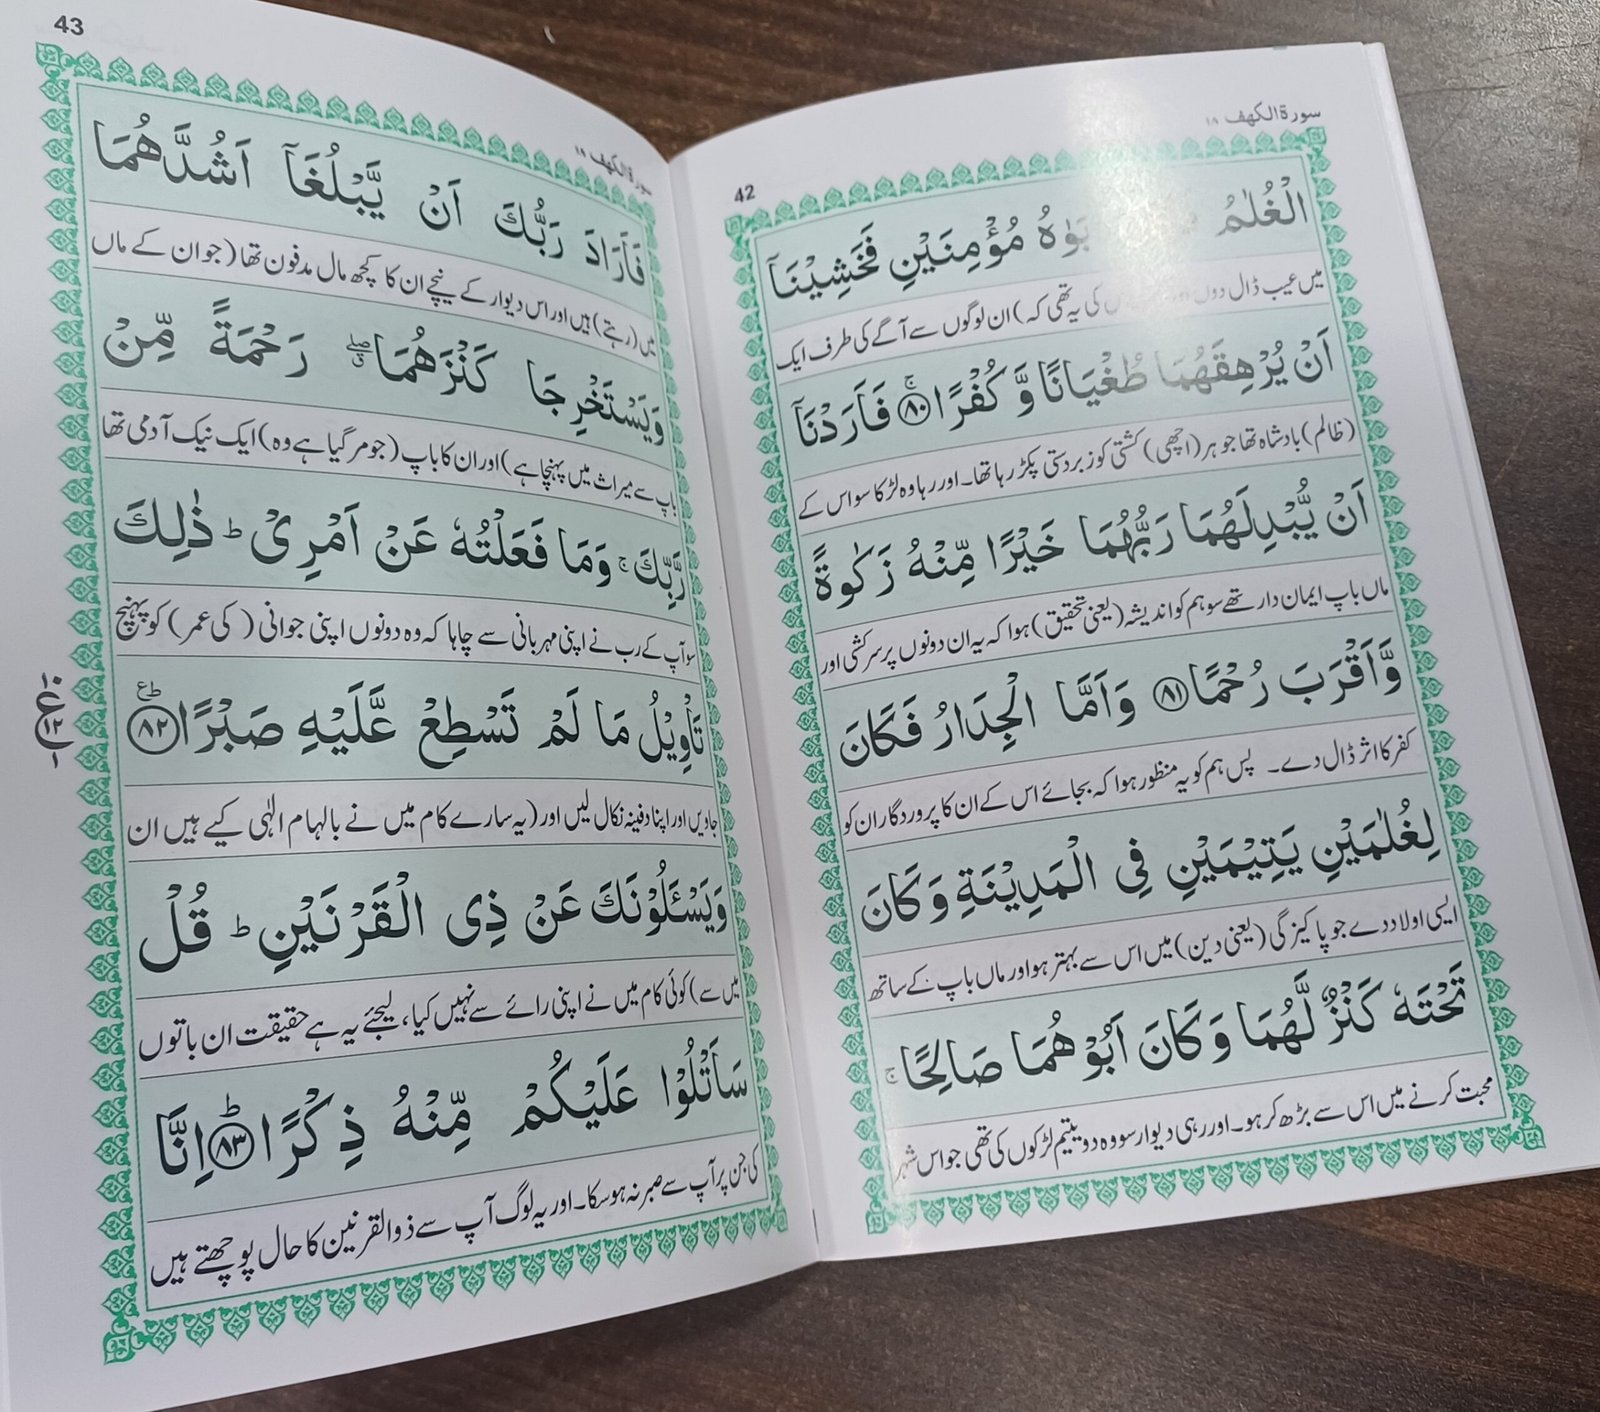 سورة الكهف ١٨
42
الْغُلٰمُ بَوٰهُ مُؤْمِنَيْنِ فَخَشِيْنَآ
میں عیب ڈال دوں کی یہ تھی کہ) ان لوگوں سے آگے کی طرف ایک
اَنْ يُّرْهِقَهُمَا طُغْيَانًا وَّ كُفْرًا ۚ‏ ﴿٨٠﴾ فَاَرَدْنَآ
(ظالم) بادشاہ تھا جو ہر (اچھی) کشتی کو زبردستی پکڑ رہا تھا۔ اور رہا وہ لڑکا سو اس کے
اَنْ يُّبْدِلَهُمَا رَبُّهُمَا خَيْرًا مِّنْهُ زَكٰوةً
ماں باپ ایمان دار تھے سو ہم کو اندیشہ (یعنی تحقیق) ہوا کہ یہ ان دونوں پر سرکشی اور
وَّاَقْرَبَ رُحْمًا ﴿٨١﴾ وَاَمَّا الْجِدَارُ فَكَانَ
کفر کا اثر ڈال دے۔ پس ہم کو یہ منظور ہوا کہ بجائے اس کے ان کا پروردگار ان کو
لِغُلٰمَيْنِ يَتِيْمَيْنِ فِى الْمَدِيْنَةِ وَكَانَ
ایسی اولاد دے جو پاکیزگی (یعنی دین) میں اس سے بہتر ہو اور ماں باپ کے ساتھ
تَحْتَهٗ كَنْزٌ لَّهُمَا وَكَانَ اَبُوْهُمَا صَالِحًا ۚ
محبت کرنے میں اس سے بڑھ کر ہو۔ اور رہی دیوار سو وہ دو یتیم لڑکوں کی تھی جو اس شہر
43
سورة الكهف ١٨
فَاَرَادَ رَبُّكَ اَنْ يَّبْلُغَآ اَشُدَّهُمَا
میں (رہتے) ہیں اور اس دیوار کے نیچے ان کا کچھ مال مدفون تھا (جو ان کے ماں
وَيَسْتَخْرِجَا كَنْزَهُمَا ۖق رَحْمَةً مِّنْ
باپ سے میراث میں پہنچا ہے) اور ان کا باپ (جو مر گیا ہے وہ) ایک نیک آدمی تھا
رَّبِّكَ ۚ وَمَا فَعَلْتُهٗ عَنْ اَمْرِىْ ؕ ذٰلِكَ
سو آپ کے رب نے اپنی مہربانی سے چاہا کہ وہ دونوں اپنی جوانی (کی عمر) کو پہنچ
تَاْوِيْلُ مَا لَمْ تَسْطِعْ عَّلَيْهِ صَبْرًا ؕع ﴿٨٢﴾
١٠ ع ١٢ ١
جاویں اور اپنا دفینہ نکال لیں اور (یہ سارے کام میں نے بالہام الٰہی کیے ہیں ان
وَيَسْـَٔلُوْنَكَ عَنْ ذِى الْقَرْنَيْنِ ؕ قُلْ
میں سے) کوئی کام میں نے اپنی رائے سے نہیں کیا، لیجئے یہ ہے حقیقت ان باتوں
سَاَتْلُوْا عَلَيْكُمْ مِّنْهُ ذِكْرًا ؕ ﴿٨٣﴾ اِنَّا
کی جن پر آپ سے صبر نہ ہو سکا۔ اور یہ لوگ آپ سے ذوالقرنین کا حال پوچھتے ہیں